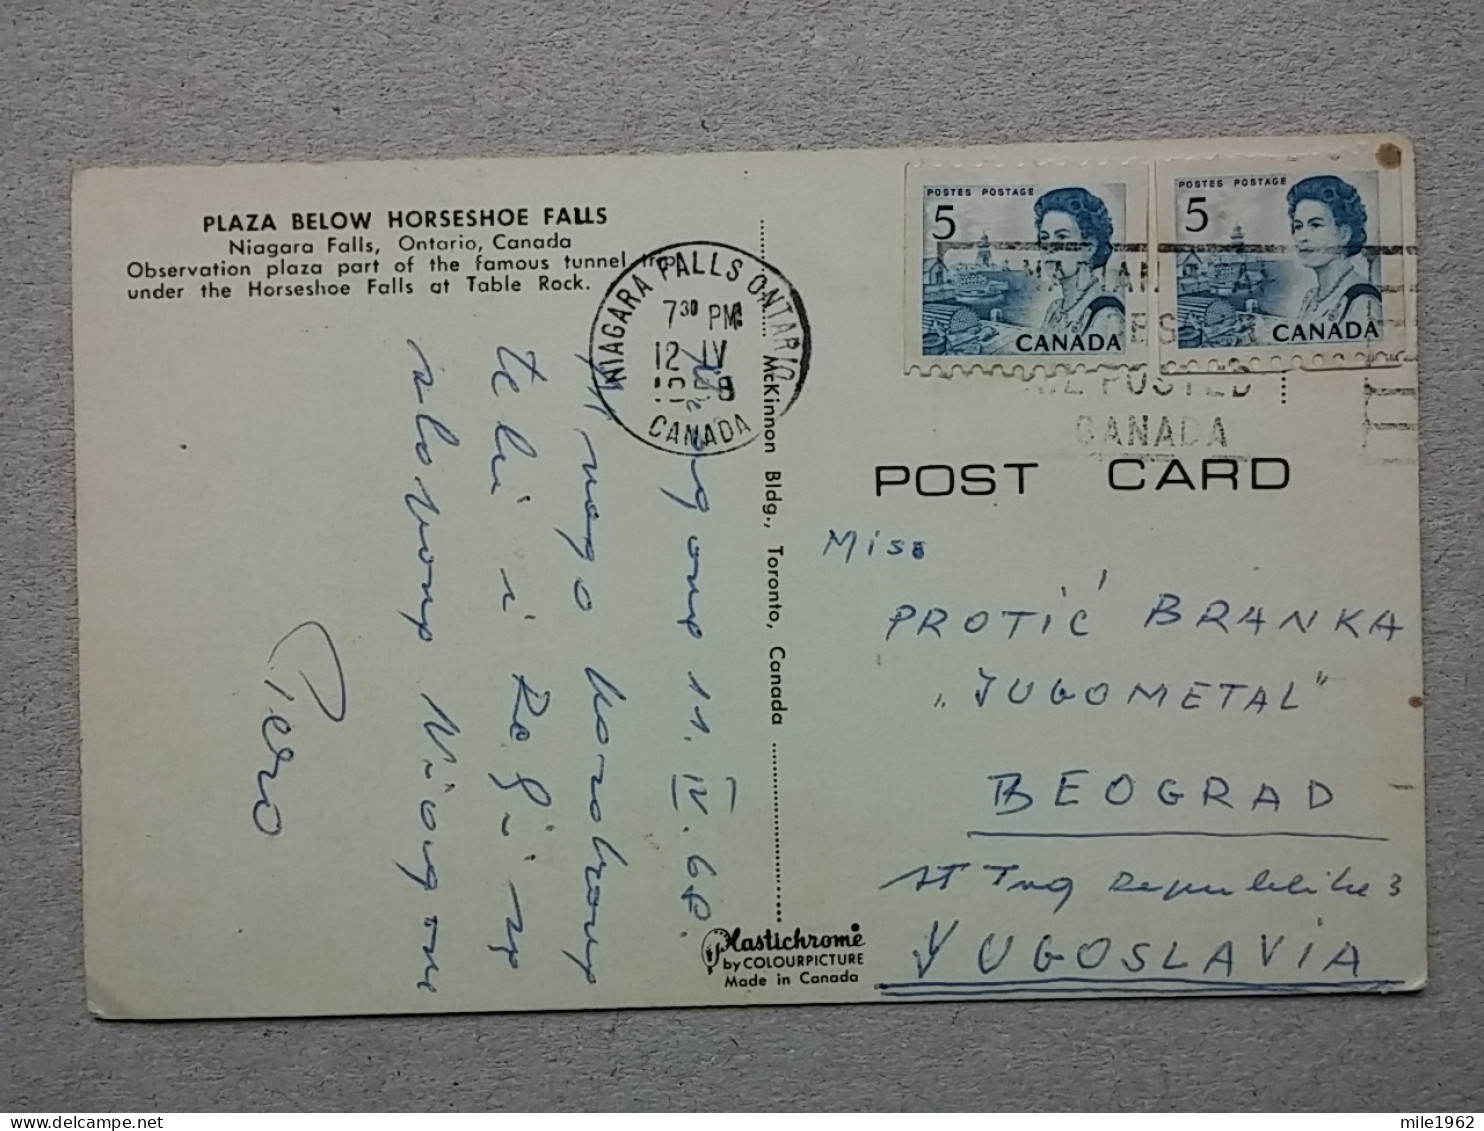 PLAZA BELOW HORSESHOE FALLS
Niagara Falls, Ontario, Canada
Observation plaza part of the famous tunnel trip
under the Horseshoe Falls at Table Rock.
NIAGARA FALLS ONTARIO
7 30 PM
12 IV
CANADA
11. IV. 68.
mnogo
tebi i
Piero
McKinnon Bldg., Toronto, Canada
Plastichrome
by COLOURPICTURE
Made in Canada
POSTES POSTAGE
5
CANADA
POSTES POSTAGE
5
CANADA
POSTED
CANADA
POST CARD
Miss
PROTIĆ BRANKA
„JUGOMETAL"
BEOGRAD
Trg Republike 3
YUGOSLAVIA
mile1962